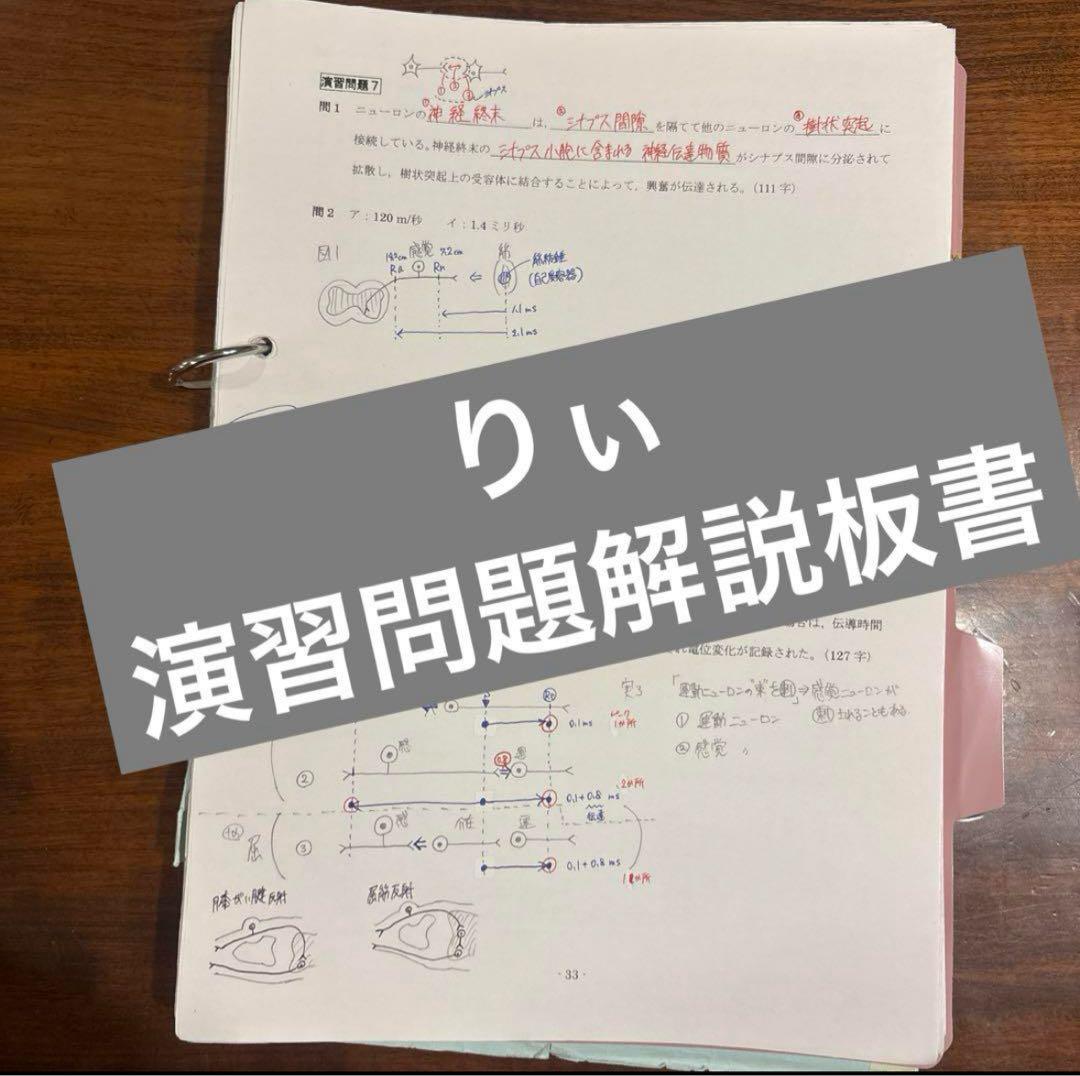 演習問題7
① ② ③ シナプス
問1 ニューロンの①神経終末は,②シナプス間隙を隔てて他のニューロンの③樹状突起に
接続している。神経終末のシナプス小胞に含まれる神経伝達物質がシナプス間隙に分泌されて
拡散し,樹状突起上の受容体に結合することによって,興奮が伝達される。(111字)
問2 ア:120 m/秒 イ:1.4ミリ秒
図1
感覚 7.2cm 筋
筋紡錘
(自己受容器)
1.1ms
2.1ms
りぃ
演習問題解説板書
伝導時間
電位変化が記録された。(127字)
実3 「運動ニューロンの"束"を刺⇒感覚ニューロンが
刺されることもある
① 運動ニューロン
② 感覚 〃
0.1ms
ピーク
1か所
感 0.8 運
②
2か所
0.1+0.8 ms
伝達
屈 ③ 感 介在 運
0.1+0.8ms
1か所
膝がい腱反射 屈筋反射
- 33 -